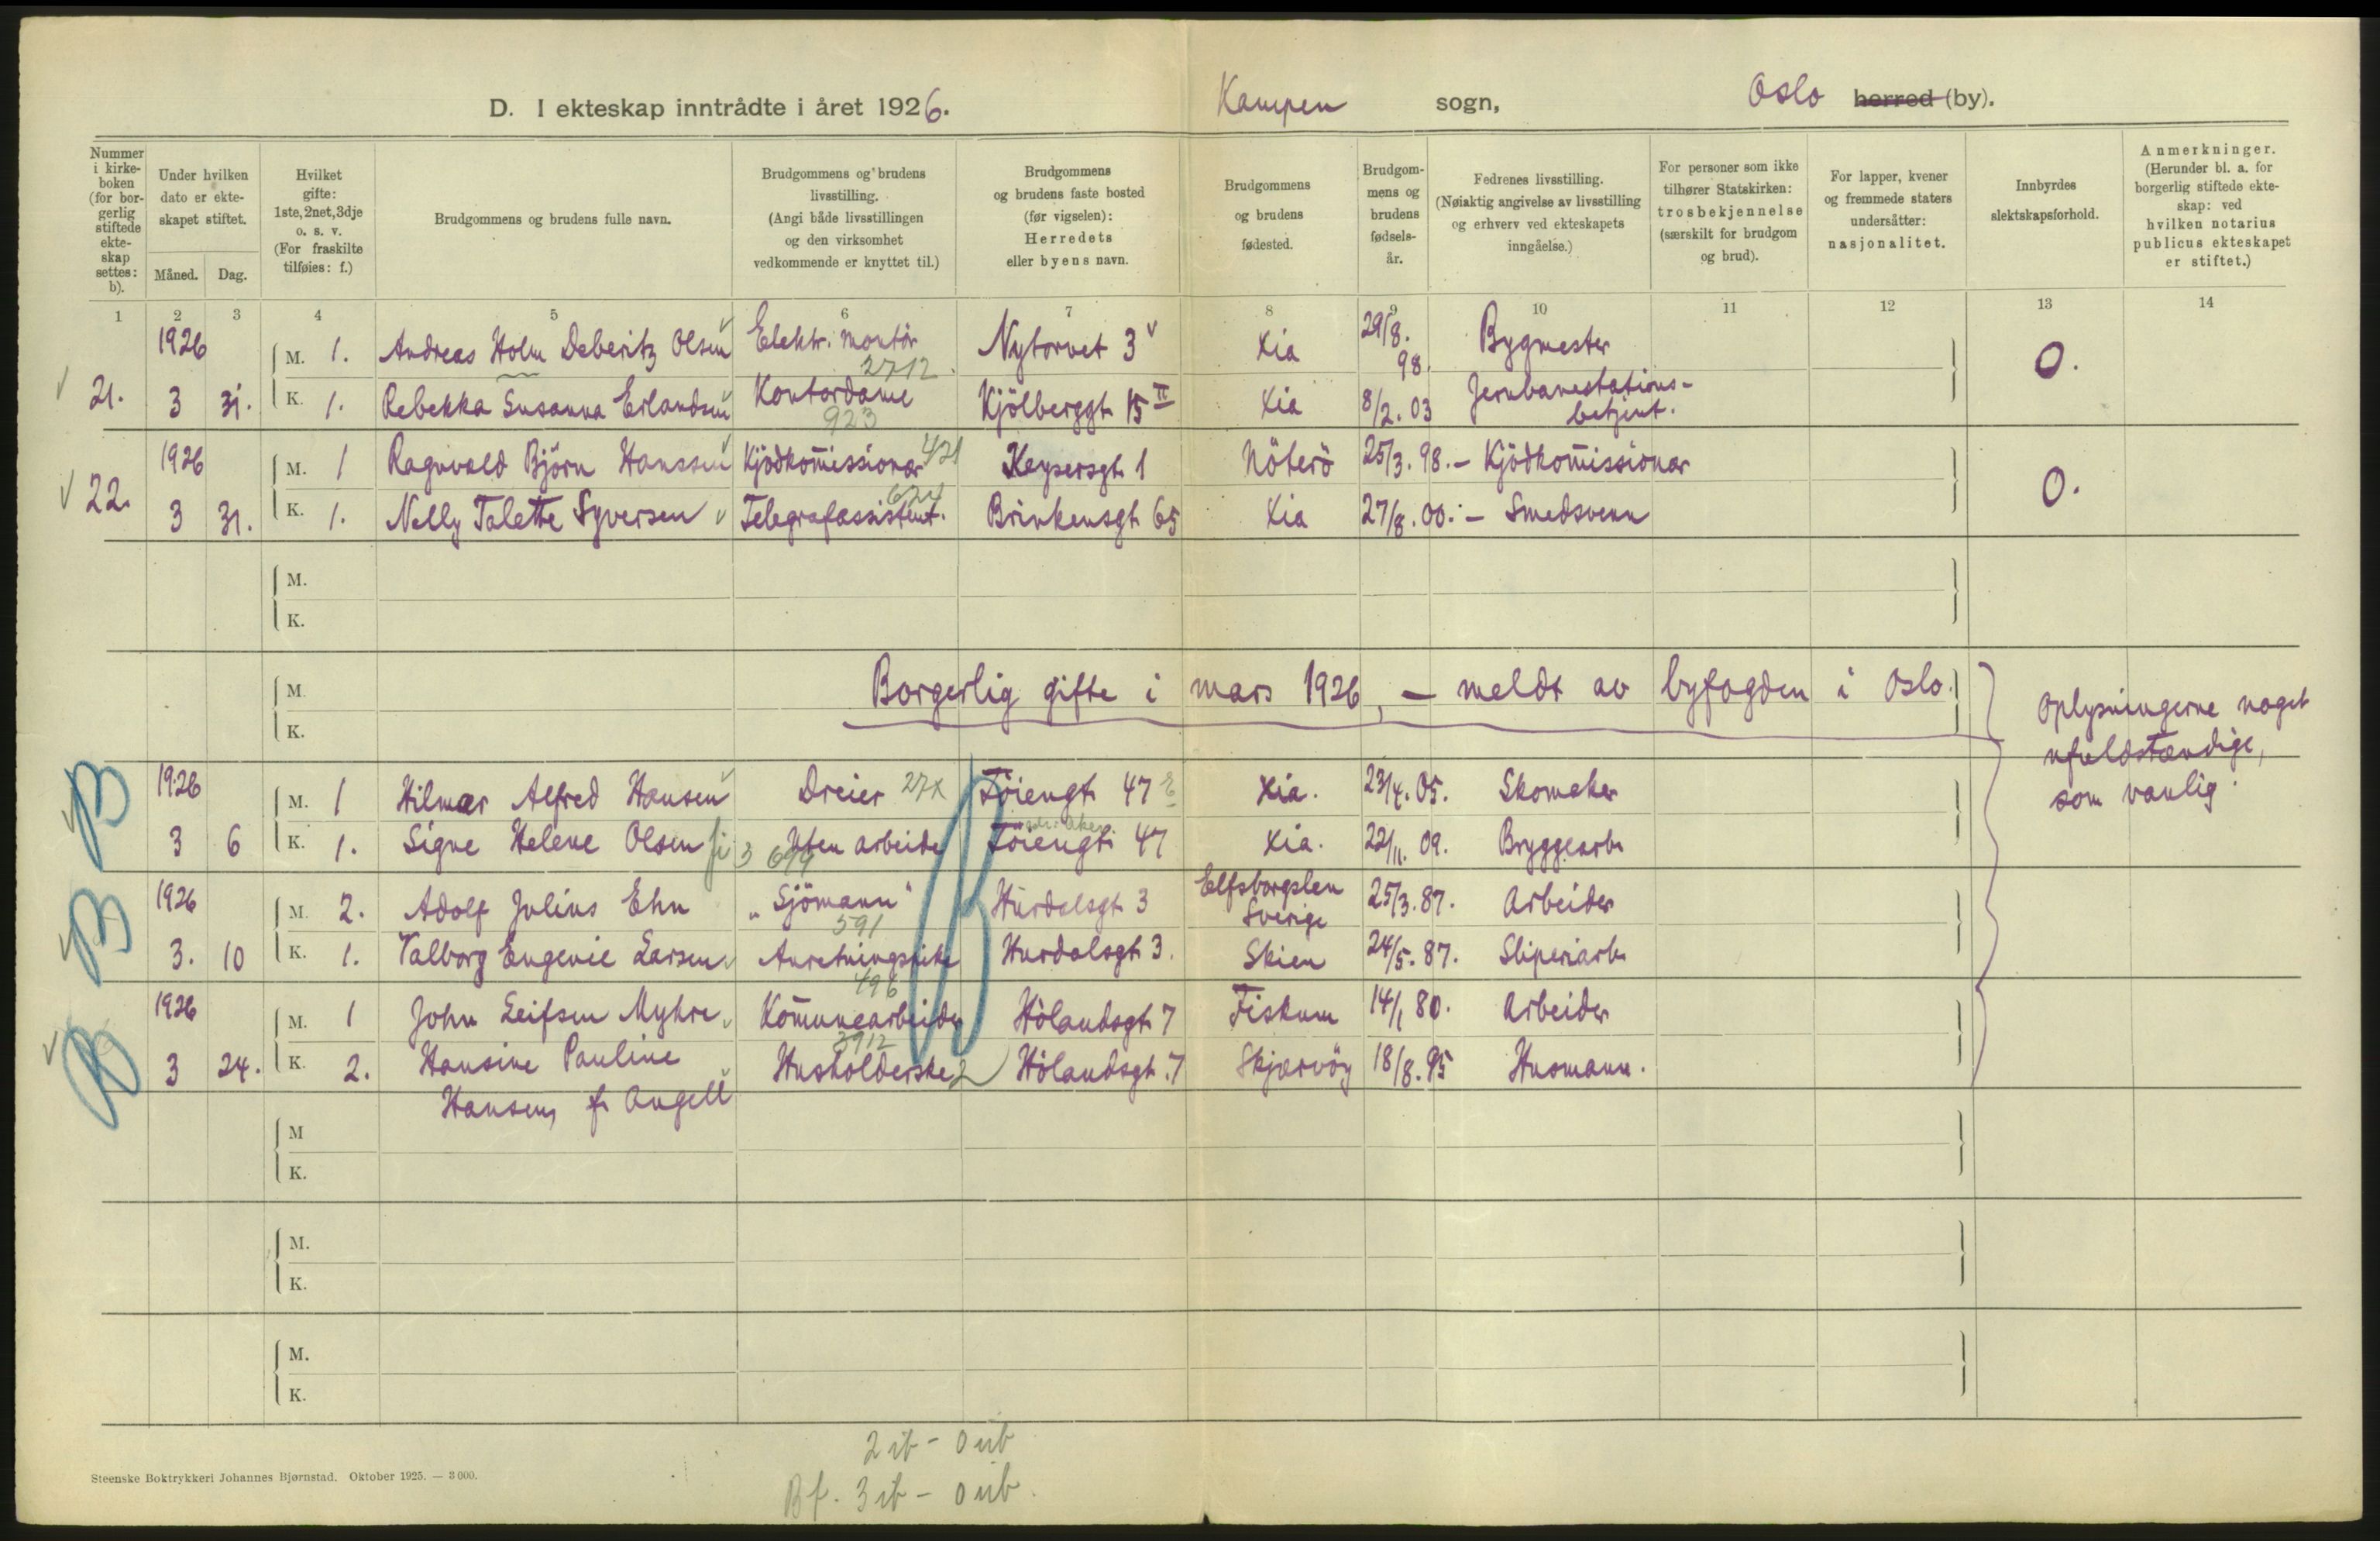 D. I ekteskap inntrådte i året 1926. Kampen sogn, Oslo herred (by).
Nummer i kirkeboken (for borgerlig stiftede ekteskap settes: b).
Under hvilken dato er ekteskapet stiftet.
Måned. Dag.
Hvilket gifte: 1ste, 2net, 3dje o. s. v. (For fraskilte tilføies: f.)
Brudgommens og brudens fulle navn.
Brudgommens og brudens livsstilling. (Angi både livsstillingen og den virksomhet vedkommende er knyttet til.)
Brudgommens og brudens faste bosted (før vigselen): Herredets eller byens navn.
Brudgommens og brudens fødested.
Brudgommens og brudens fødselsår.
Fedrenes livsstilling. (Nøiaktig angivelse av livsstilling og erhverv ved ekteskapets inngåelse.)
For personer som ikke tilhører Statskirken: trosbekjennelse (særskilt for brudgom og brud).
For lapper, kvener og fremmede staters undersåtter: nasjonalitet.
Innbyrdes slektskapsforhold.
Anmerkninger. (Herunder bl. a. for borgerlig stiftede ekteskap: ved hvilken notarius publicus ekteskapet er stiftet.)
1 2 3 4 5 6 7 8 9 10 11 12 13 14
1926 M. 1. Andreas Holm Deberitz Olsen Elektr. montör 2712 Nytorvet 3 Xia 29/8. 98. Bygmester 0.
21. 3 31. K. 1. Rebekka Susanna Erlandsen Kontordame 923 Kjölberggt 15 II Xia 8/2. 03 Jernbanestations-
betjent.
1926 M. 1 Ragnvald Björn Hanssen Kjödkommissionær 421 Keysersgt 1 Nöterö 25/3. 98. – Kjödkommissionær 0.
22. 3 31. K. 1. Nelly Talette Syversen Telegrafassistent. 624 Brinkensgt 65 Xia 27/8. 00. – Smedsvenn
M.
K.
M. Borgerlig gifte i mars 1926, – meldt av byfogden i Oslo.
K.
Oplysningerne noget
ufuldstændige,
som vanlig.
B 1926 M. 1 Hilmar Alfred Hansen Dreier 27X Töiengt 47 Xia. 23/4. 05. Skomaker
3 6 K. 1. Signe Helene Olsen Uten arbeide Töiengt 47 Xia. 22/11. 09. Bryggearb.
B 1926 M. 2. Adolf Julius Ehn "Sjömann" 591 Hurdalsgt 3 Elfsborgslen
Sverige 25/3. 87. Arbeider
3. 10 K. 1. Valborg Eugenie Larsen Anretningspike 496 Hurdalsgt 3. Skien 24/5. 87. Sliperiarb.
B 1926 M. 1 John Leifsen Myhre Kommunearbeider 3912 Hölandsgt 7 Fiskum 14/1 80. Arbeider
3 24. K. 2. Hansine Pauline Husholderske Hölandsgt. 7 Skjærvöy 18/8. 95 Husmann.
Hansen, f. Angell
M
K.
M.
K.
M.
K.
2 ib – 0 ub
Bf. 3 ib – 0 ub.
Steenske Boktrykkeri Johannes Bjørnstad. Oktober 1925. — 3 000.